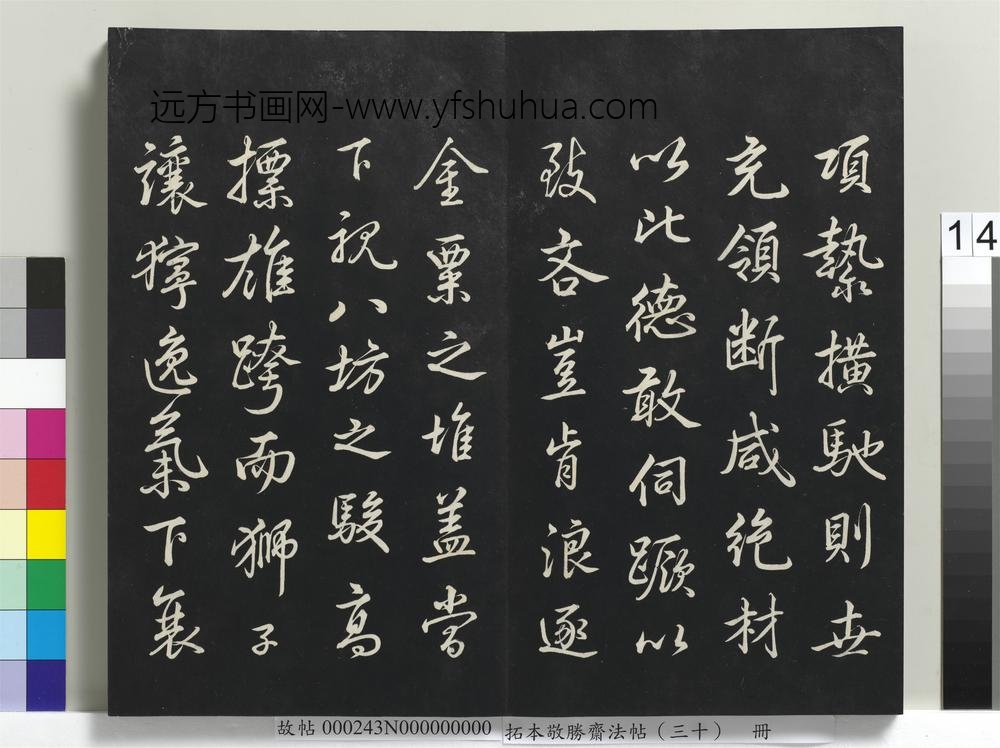 远方书画网-www.yfshuhua.com
項縶橫馳則世
充領断咸绝材
以此德敢伺蹶以
致吝豈肯浪逐
金粟之堆盖當
下視八坊之駿高
摽雄跨而狮子
讓獰逸氣下衰
14
故帖 000243N000000000
拓本敬勝齋法帖（三十） 冊